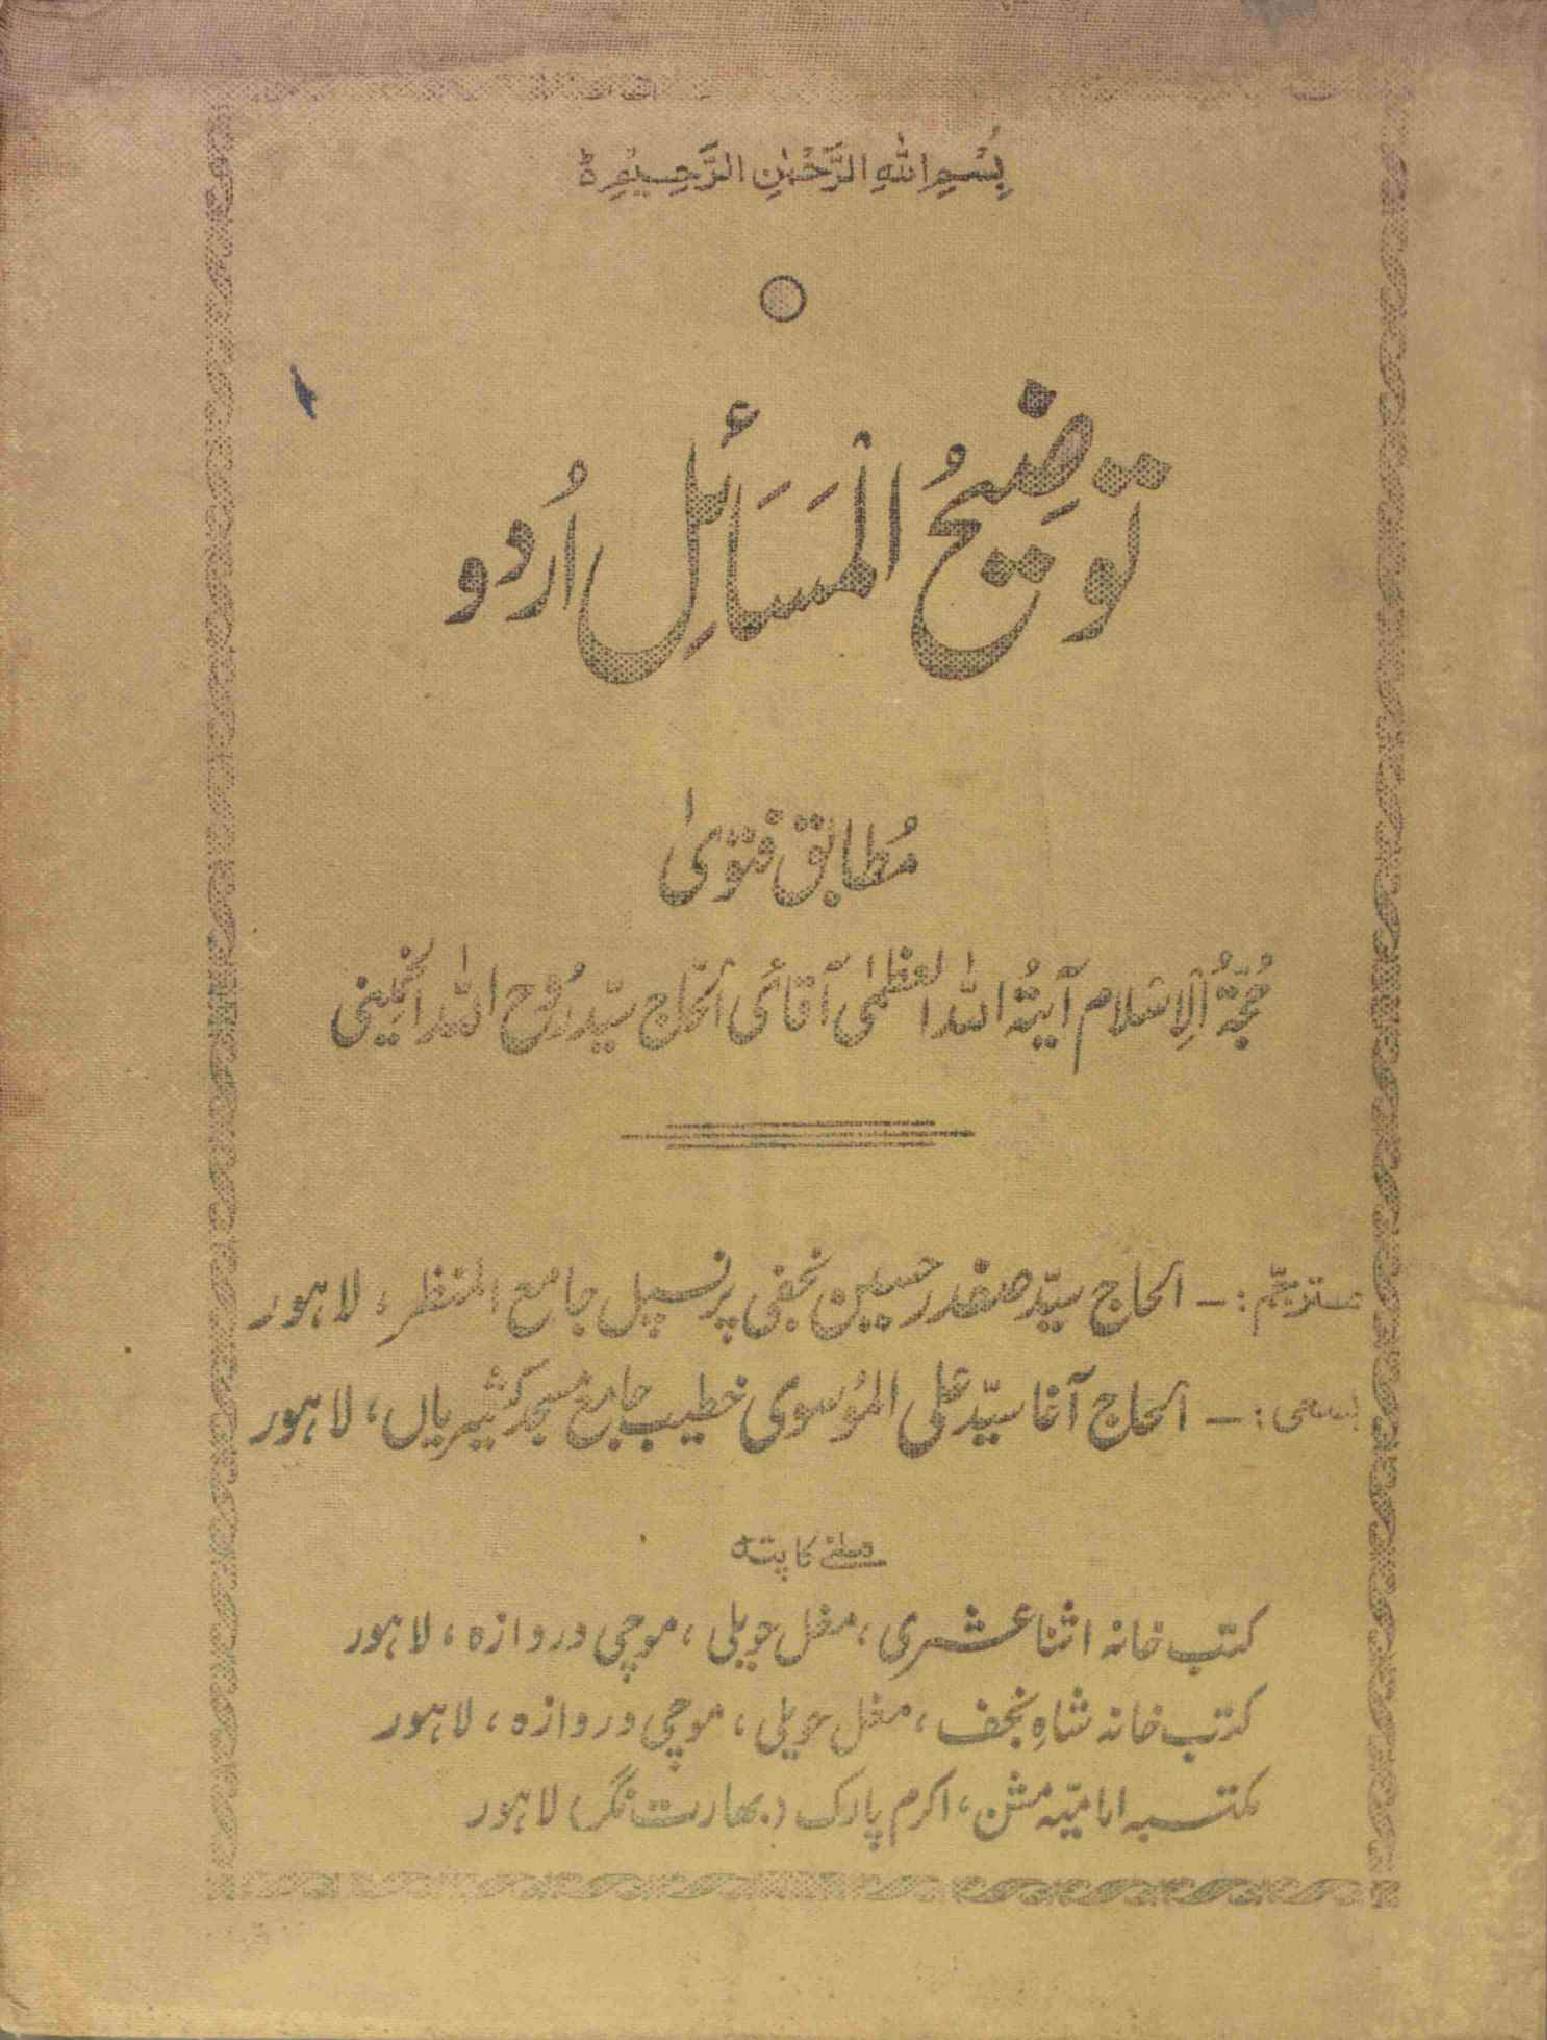 بِسْمِ اللهِ الرَّحْمٰنِ الرَّحِيْمِ ۃ
تَوضِیحُ الْمَسَائِلِ اُردو
مُطابق فتویٰ
حُجّۃُ الْاِسْلام آیۃُ اللہ العظمٰی آقائی الحاج سیّد رُوح اللہ الخمینی
مترجم :۔ الحاج سیّد صفدر حسین نجفی پرنسپل جامع المنتظر، لاہور
بسعی :۔ الحاج آغا سیّد علی المُوسوی خطیب جامع مسجد کشمیریاں، لاہور
ملنے کا پتہ
کتب خانہ اثنا عشری، مغل حویلی، موچی دروازہ، لاہور
کتب خانہ شاہِ نجف، مغل حویلی، موچی دروازہ، لاہور
مکتبہ امامیّہ مشن، اکرم پارک (بھارت نگر) لاہور